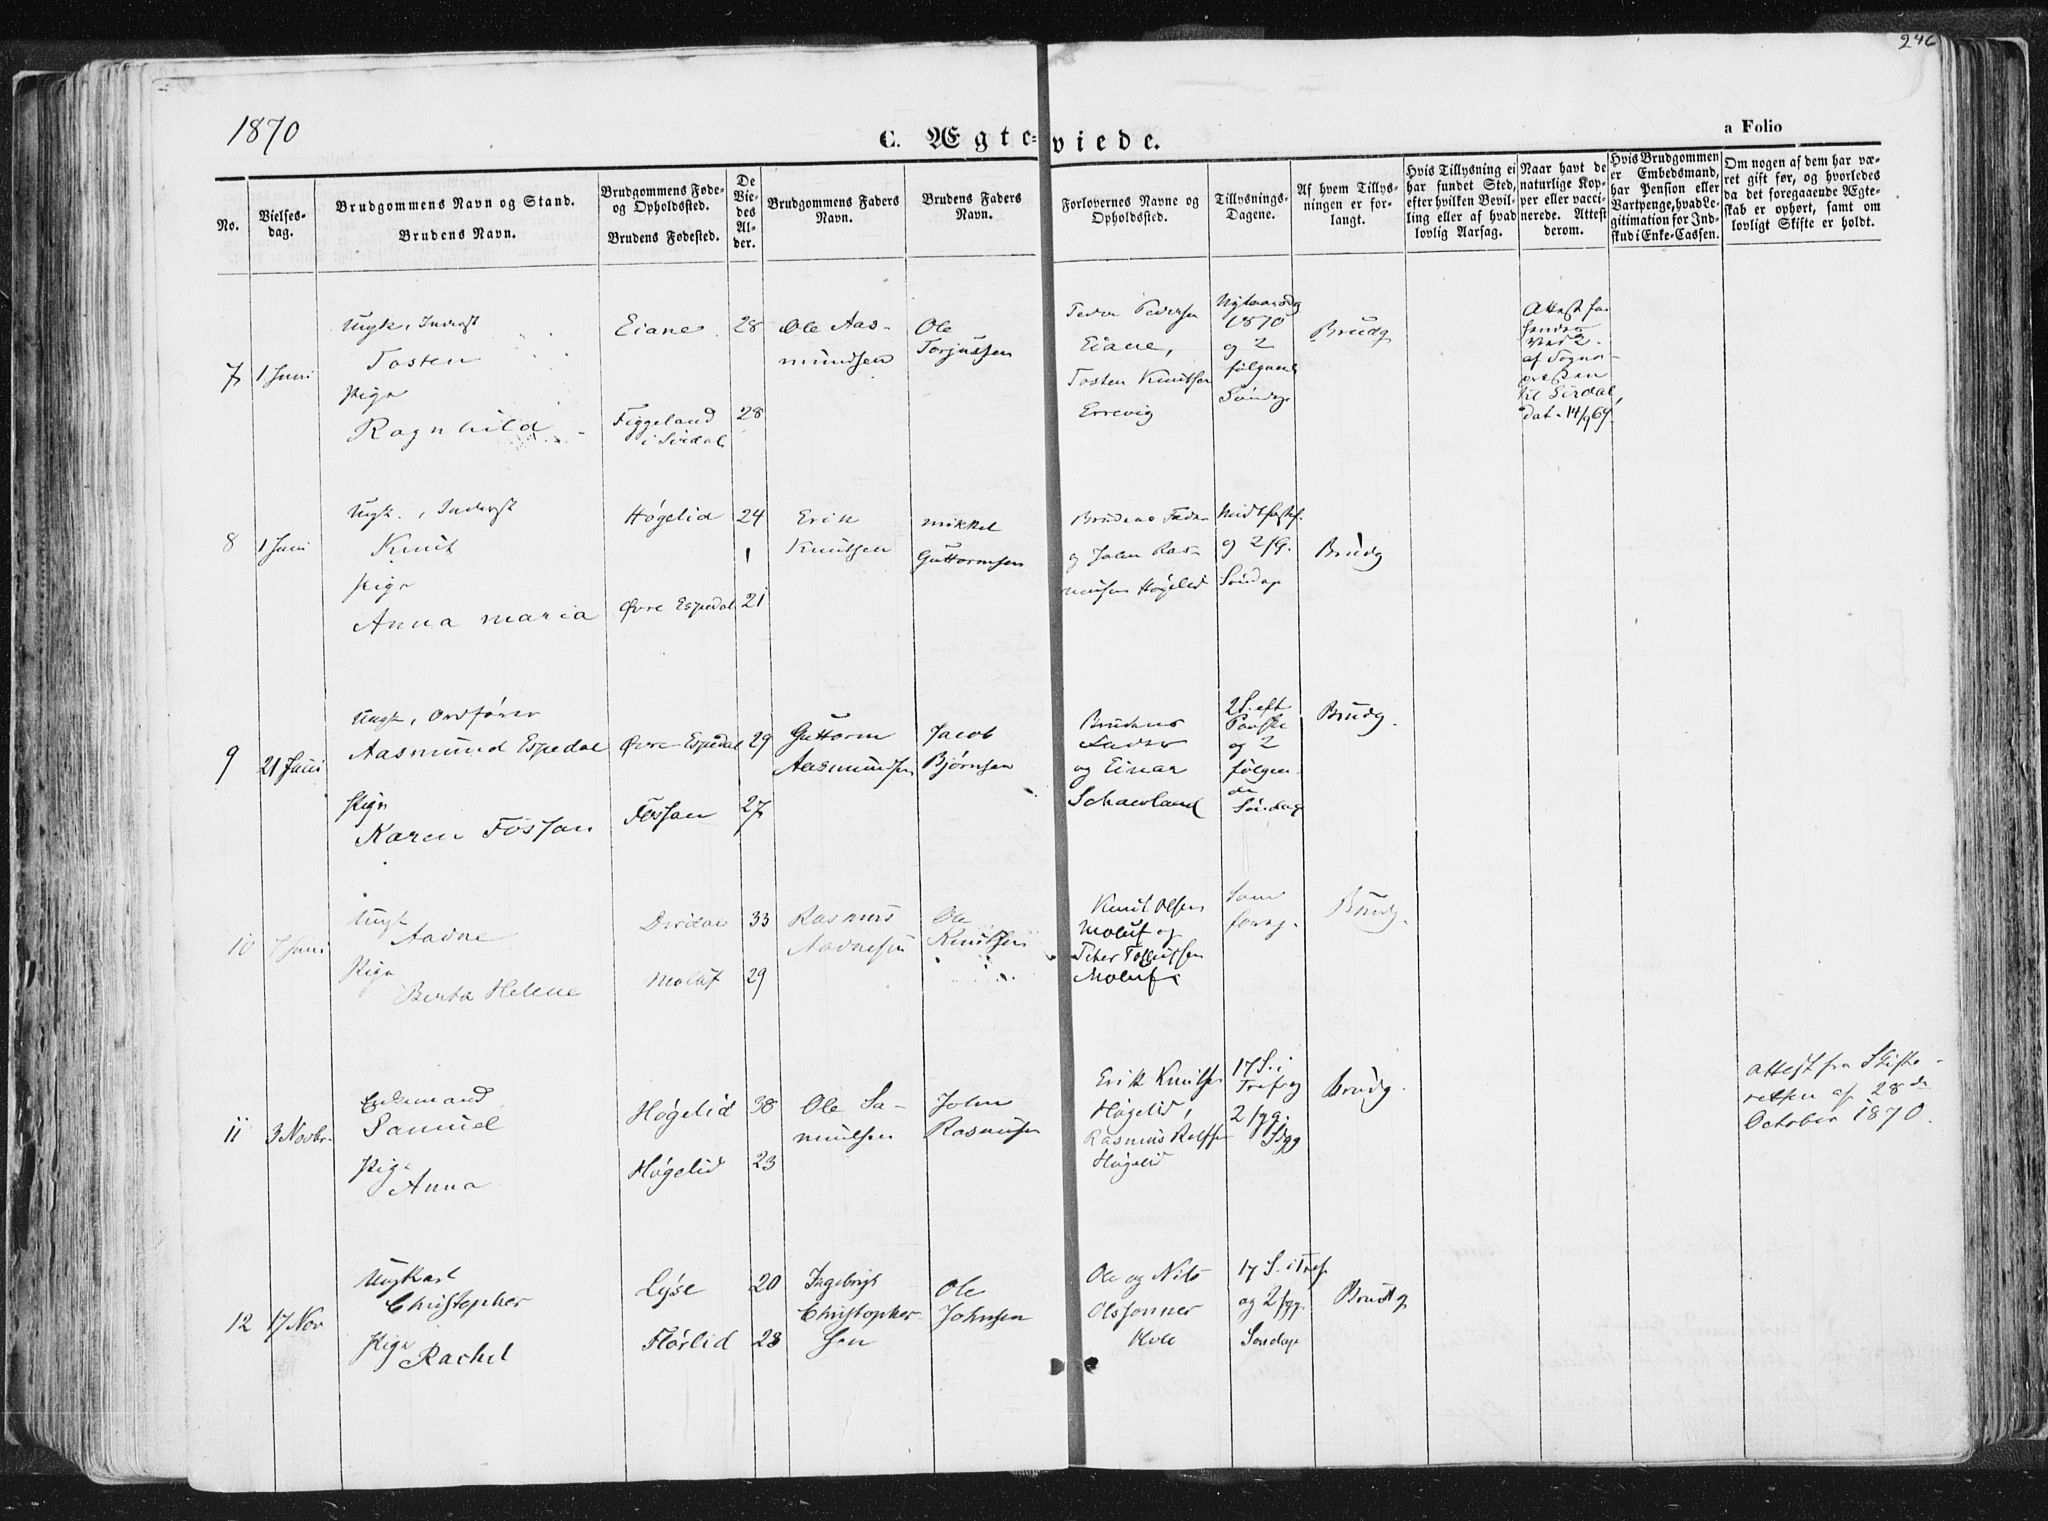 246
1870
C. Ægteviede.
a Folio
No.
Vielses-
dag.
Brudgommens Navn og Stand.
Brudens Navn.
Brudgommens Føde-
og Opholdssted.
Brudens Fødested.
De
Vie-
des
Al-
der.
Brudgommens Faders
Navn.
Brudens Faders
Navn.
Forlovernes Navne og
Opholdssted.
Tillysnings-
Dagene.
Af hvem Tillys-
ningen er for-
langt.
Hvis Tillysning ei
har fundet Sted,
efter hvilken Bevil-
ling eller af hvad
lovlig Aarsag.
Naar havt de
naturlige Kop-
per eller vacci-
nerede. Attest
derom.
Hvis Brudgommen
er Embedsmand,
har Pension eller
Vartpenge, hvad Le-
gitimation for Ind-
skud i Enke-Cassen.
Om nogen af dem har væ-
ret gift før, og hvorledes
da det foregaaende Ægte-
skab er ophørt, samt om
lovligt Skifte er holdt.
7
1 Juni
Ungk, Inderst
Tosten
Pige
Ragnhild
Eiane
Figgeland
i Sirdal
28
28
Ole Aas-
mundsen
Ole
Torjussen
Peder Pedersen
Eiane,
Tosten Knutsen
Errevig
Nytaarsdg
1870
og 2
følgend
Søndag
Brudg
Attest
af Sogne-
præsten
til Sirdal,
dat. 14/9 69.
8
1 Juni
Ungk., Inderst
Knut
Pige
Anna Maria
Høgelid
Øvre Espedal
24
21
Erik
Knutsen
Mikkel
Guttormsen
Brudens Fader
og John Ras-
musen Høgelid
Midtfastef.
og 2 fg.
Søndage
Brudg
9
21 Juni
Ungk, Ordfører
Aasmund Espedal
Pige
Karen Fossan
Øvre-Espedal
Fossan
29
27
Guttorm
Aasmundsen
Jacob
Bjørnsen
Brudens
Fader
og Einar
Schaveland
2 S. eft
Paaske
og 2
følgen-
de
Søndage
Brudg.
10
7 Juni
Ungk
Aadne
Pige
Berta Helene
Dirdal
Moluf
33
29
Rasmus
Aadnesen
Ole
Knutsen
Knut Olsen
Moluf og
Peter Tollufsen
Moluf
Som
forrg.
Brudg.
11
3 Novbr.
Enkemand
Samuel
Pige
Anna
Høgelid
Høgelid
38
23
Ole Sa-
muelsen
John
Rasmusen
Erik Knutsen
Høgelid,
Rasmus Rolfsen
Høgelid
17 S. i
Tref og
2 fgg.
Sgg
Brudg.
Attest fra Skifte-
retten af 28de
October 1870.
12
17 Nov
Ungkarl
Christopher
Pige Rachel
Lyse
Flørlid
20
28
Ingebrigt
Christopher-
sen
Ole
Johnsen
Ole og Nils
Olssønner
Kole
17 S. i Tref.
og 2 fgg.
Søndage
Brudg